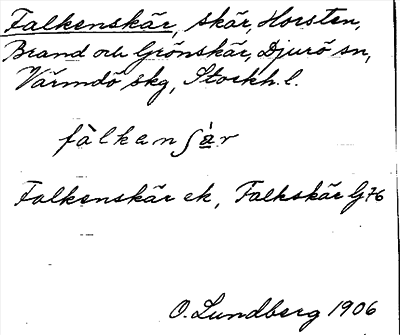 Falkenskär, skär, Horsten,
Brand och Grönskär, Djurö sn,
Värmdö skg, Stockh. l.
fàlkenʃá̱r
Falkenskär ek, Falkskär G76
O. Lundberg 1906